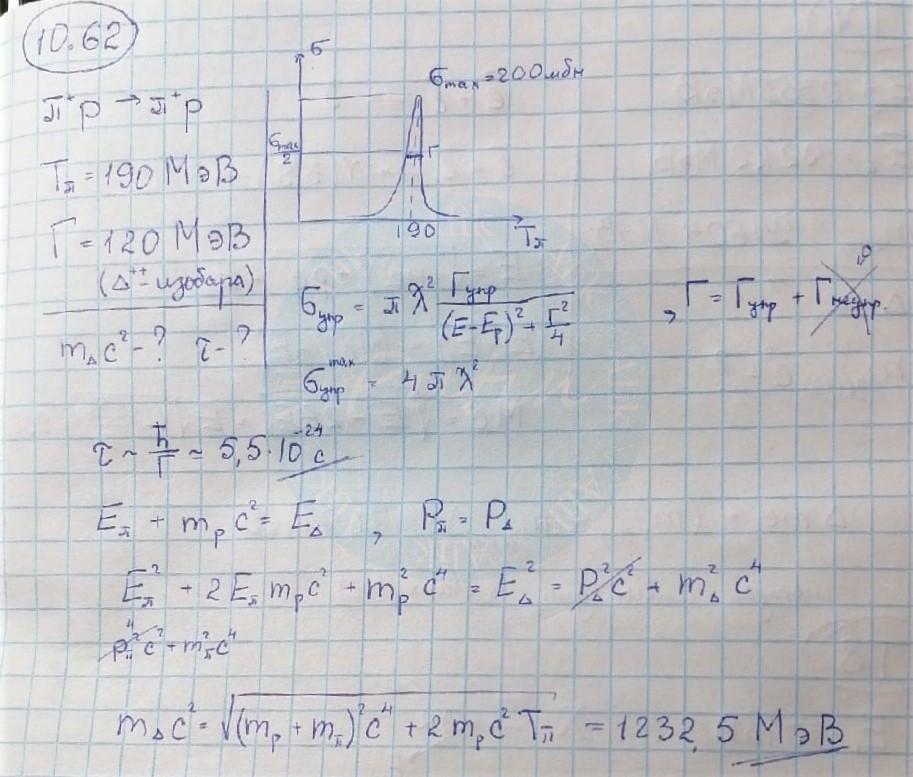 10.62
π⁺p → π⁺p
T_π = 190 МэВ
Г = 120 МэВ
(Δ⁺⁺- изобара)
m_Δc² - ? τ - ?
σ
σ_max = 200 мбн
σ_max/2
Г
190
T_π
σ_упр = πƛ² Г_упр/((E-E_p)² + Г²/4) , Г = Г_упр + Г_неупр. 0
σ_упр^max = 4πƛ²
τ ~ ħ/Г ≈ 5,5·10⁻²⁴ с
E_π + m_p c² = E_Δ , P_π = P_Δ
E_π² + 2E_π m_p c² + m_p² c⁴ = E_Δ² = P_Δ² c² + m_Δ² c⁴
p_π² c² + m_π² c⁴
m_Δ c² = √((m_p + m_π)² c⁴ + 2m_p c² T_π) = 1232,5 МэВ